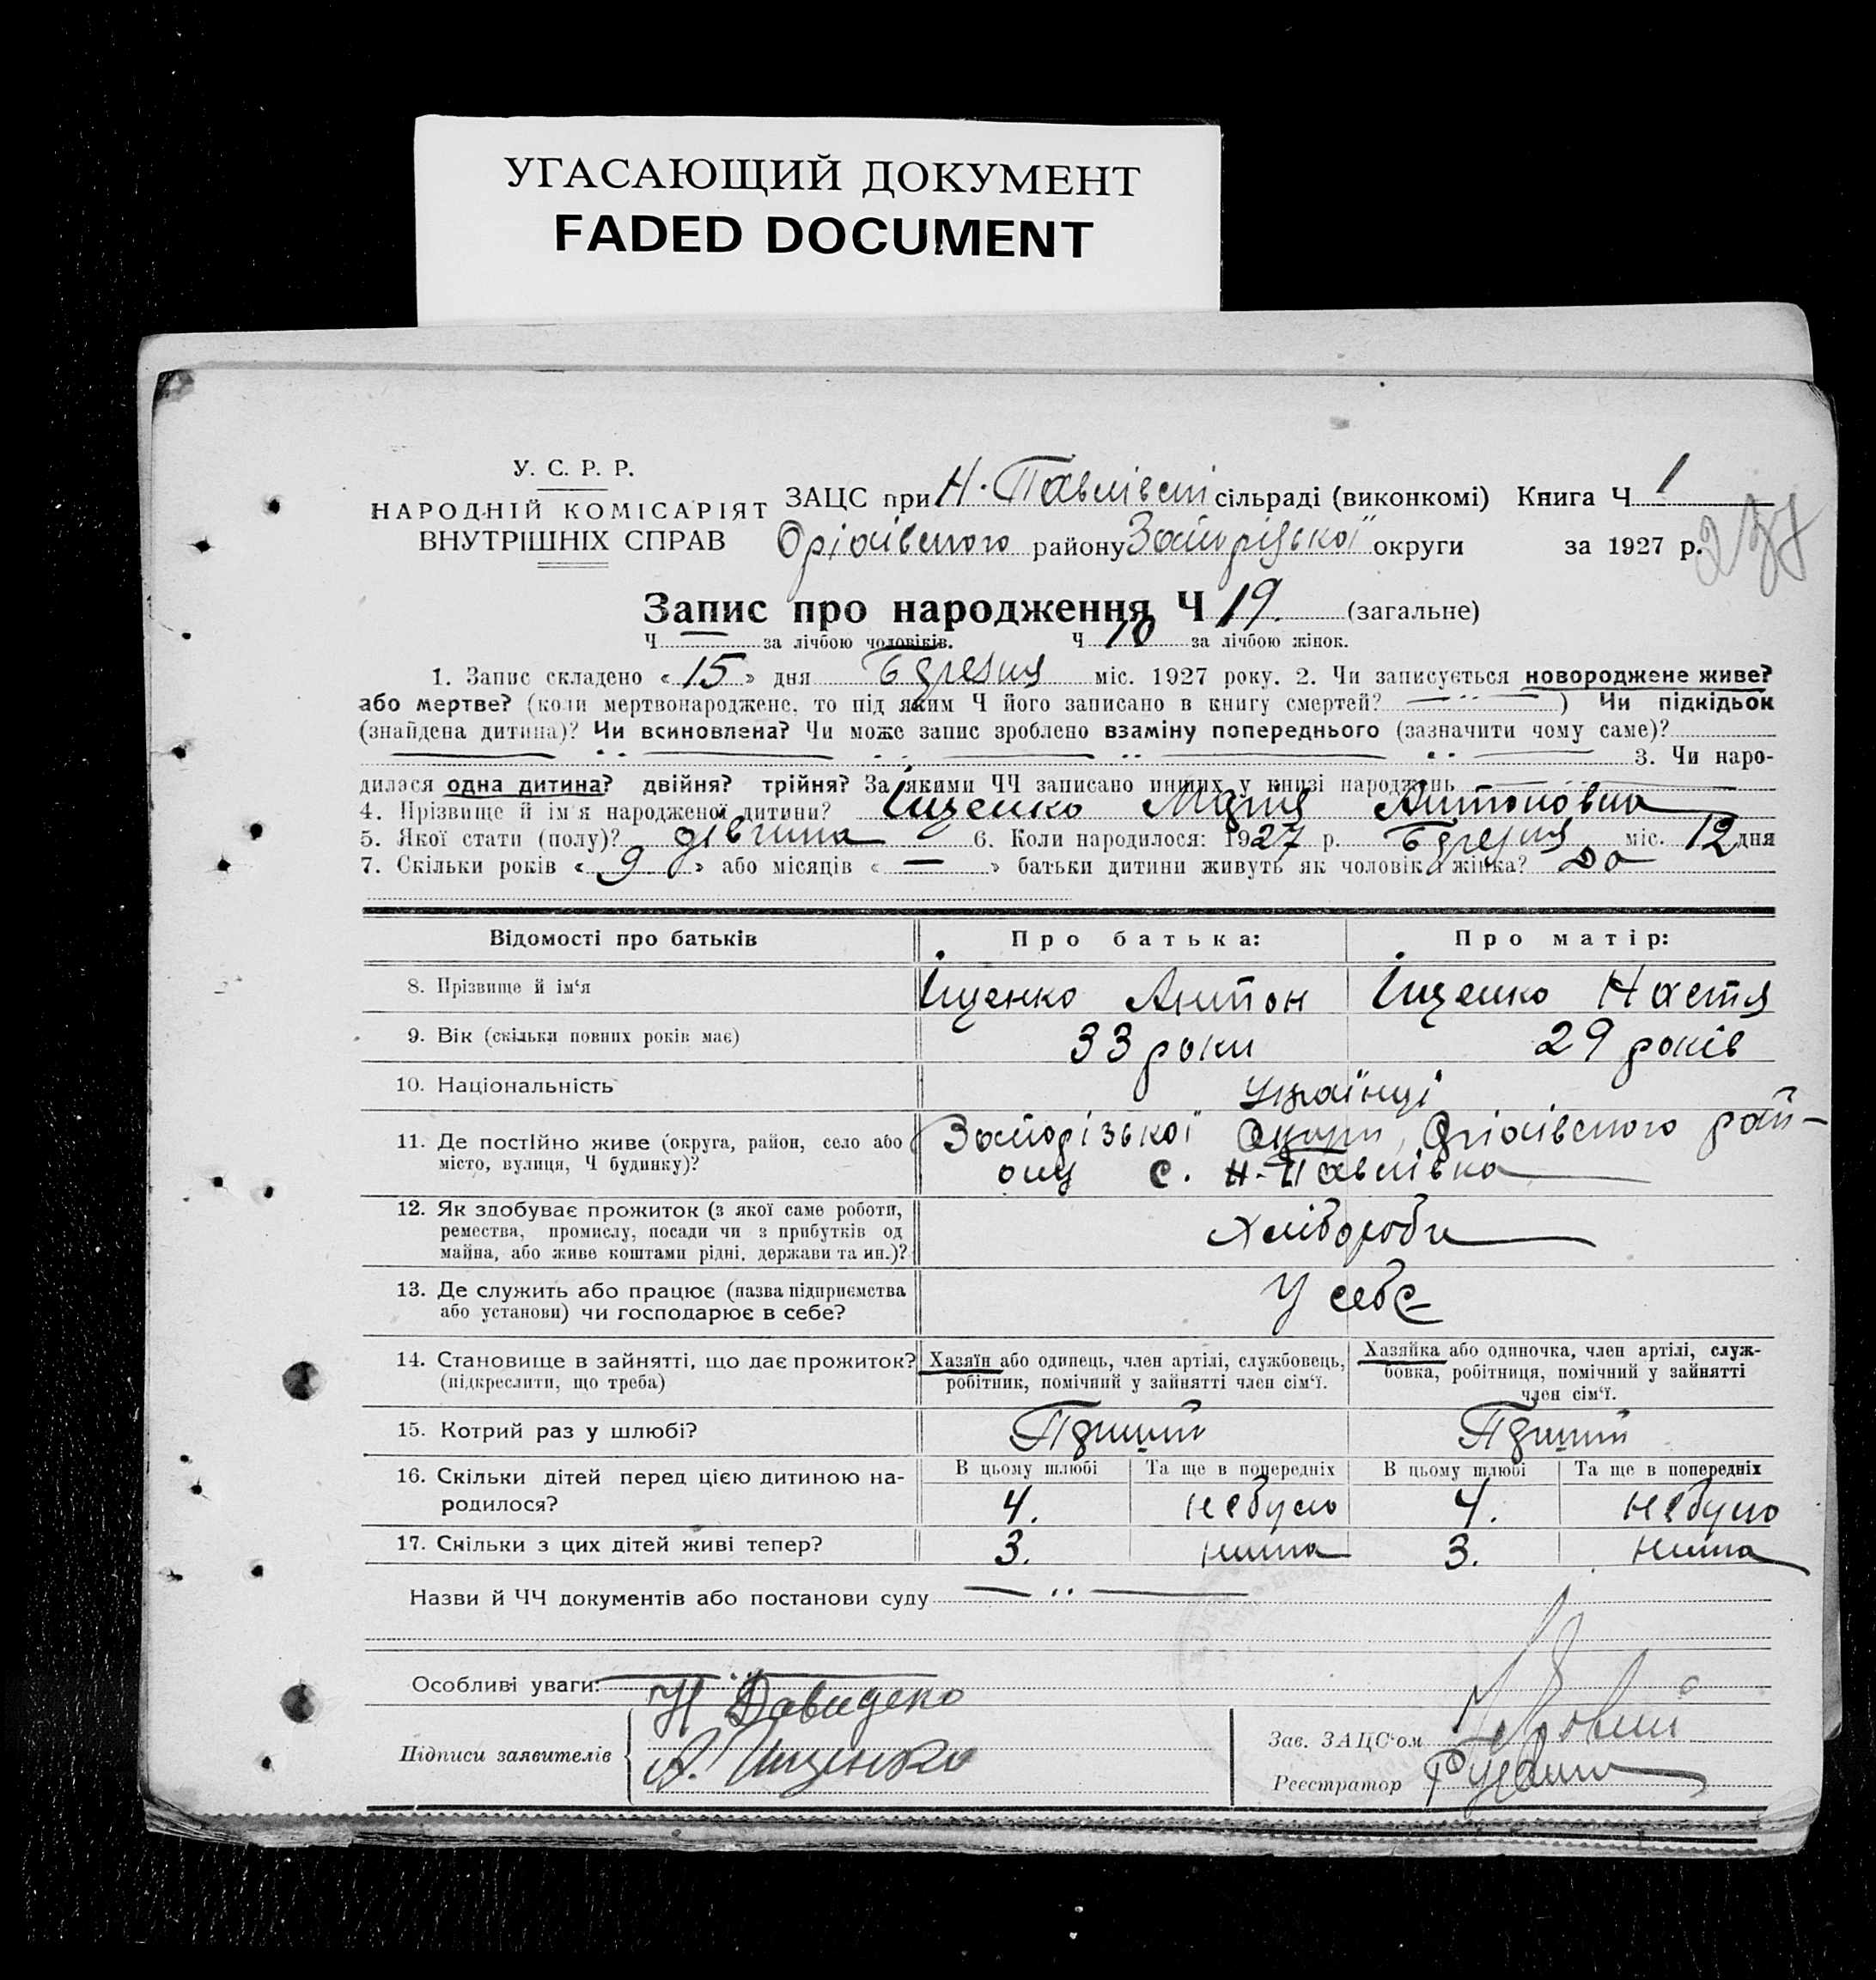 УГАСАЮЩИЙ ДОКУМЕНТ
FADED DOCUMENT
У. С. Р. Р.
НАРОДНІЙ КОМІСАРІЯТ
ВНУТРІШНІХ СПРАВ
ЗАЦС при Н. Павлівській сільраді (виконкомі) Книга Ч 1
Оріхівського району Запорізької округи за 1927 р.
237
Запис про народження Ч 19. (загальне)
Ч — за лічбою чоловіків. Ч 10 за лічбою жінок.
1. Запис складено «15» дня Березня міс. 1927 року. 2. Чи записується новороджене живе?
або мертве? (коли мертвонароджене, то під яким Ч його записано в книгу смертей? — ·· — ) Чи підкідьок
(знайдена дитина)? Чи всиновлена? Чи може запис зроблено взаміну попереднього (зазначити чому саме)?
3. Чи наро-
дилася одна дитина? двійня? трійня? За якими ЧЧ записано инших у книзі народжень
4. Прізвище й ім'я народженої дитини? Іщенко Марія Антоновна
5. Якої стати (полу)? дівчина 6. Коли народилося: 1927 р. Березня міс. 12 дня
7. Скільки років «9» або місяців «—» батьки дитини живуть як чоловік і жінка? До
Відомості про батьків Про батька: Про матір:
8. Прізвище й ім'я Іщенко Антон Іщенко Настя
9. Вік (скільки повних років має) 33 роки 29 років
10. Національність Українці
11. Де постійно живе (округа, район, село або Запорізької Округи, Оріхівського рай-
місто, вулиця, Ч будинку)? ону с. Н-Павлівка
12. Як здобуває прожиток (з якої саме роботи,
ремества, промислу, посади чи з прибутків од Хлібороби
майна, або живе коштами рідні, держави та ин.)?
13. Де служить або працює (назва підприємства У себе
або установи) чи господарює в себе?
14. Становище в зайнятті, що дає прожиток? Хазяїн або одинець, член артілі, службовець, Хазяйка або одиночка, член артілі, служ-
(підкреслити, що треба) робітник, помічний у зайнятті член сім'ї. бовка, робітниця, помічний у зайнятті
член сім'ї.
15. Котрий раз у шлюбі? Перший Перший
16. Скільки дітей перед цією дитиною на- В цьому шлюбі Та ще в попередніх В цьому шлюбі Та ще в попередніх
родилося? 4. небуло 4. небуло
17. Скільки з цих дітей живі тепер? 3. нима 3. нима
Назви й ЧЧ документів або постанови суду — ·· —
Особливі уваги:
Н Давиденко
Підписи заявителів А. Ищенко
Зав. ЗАЦС'ом
Реєстратор